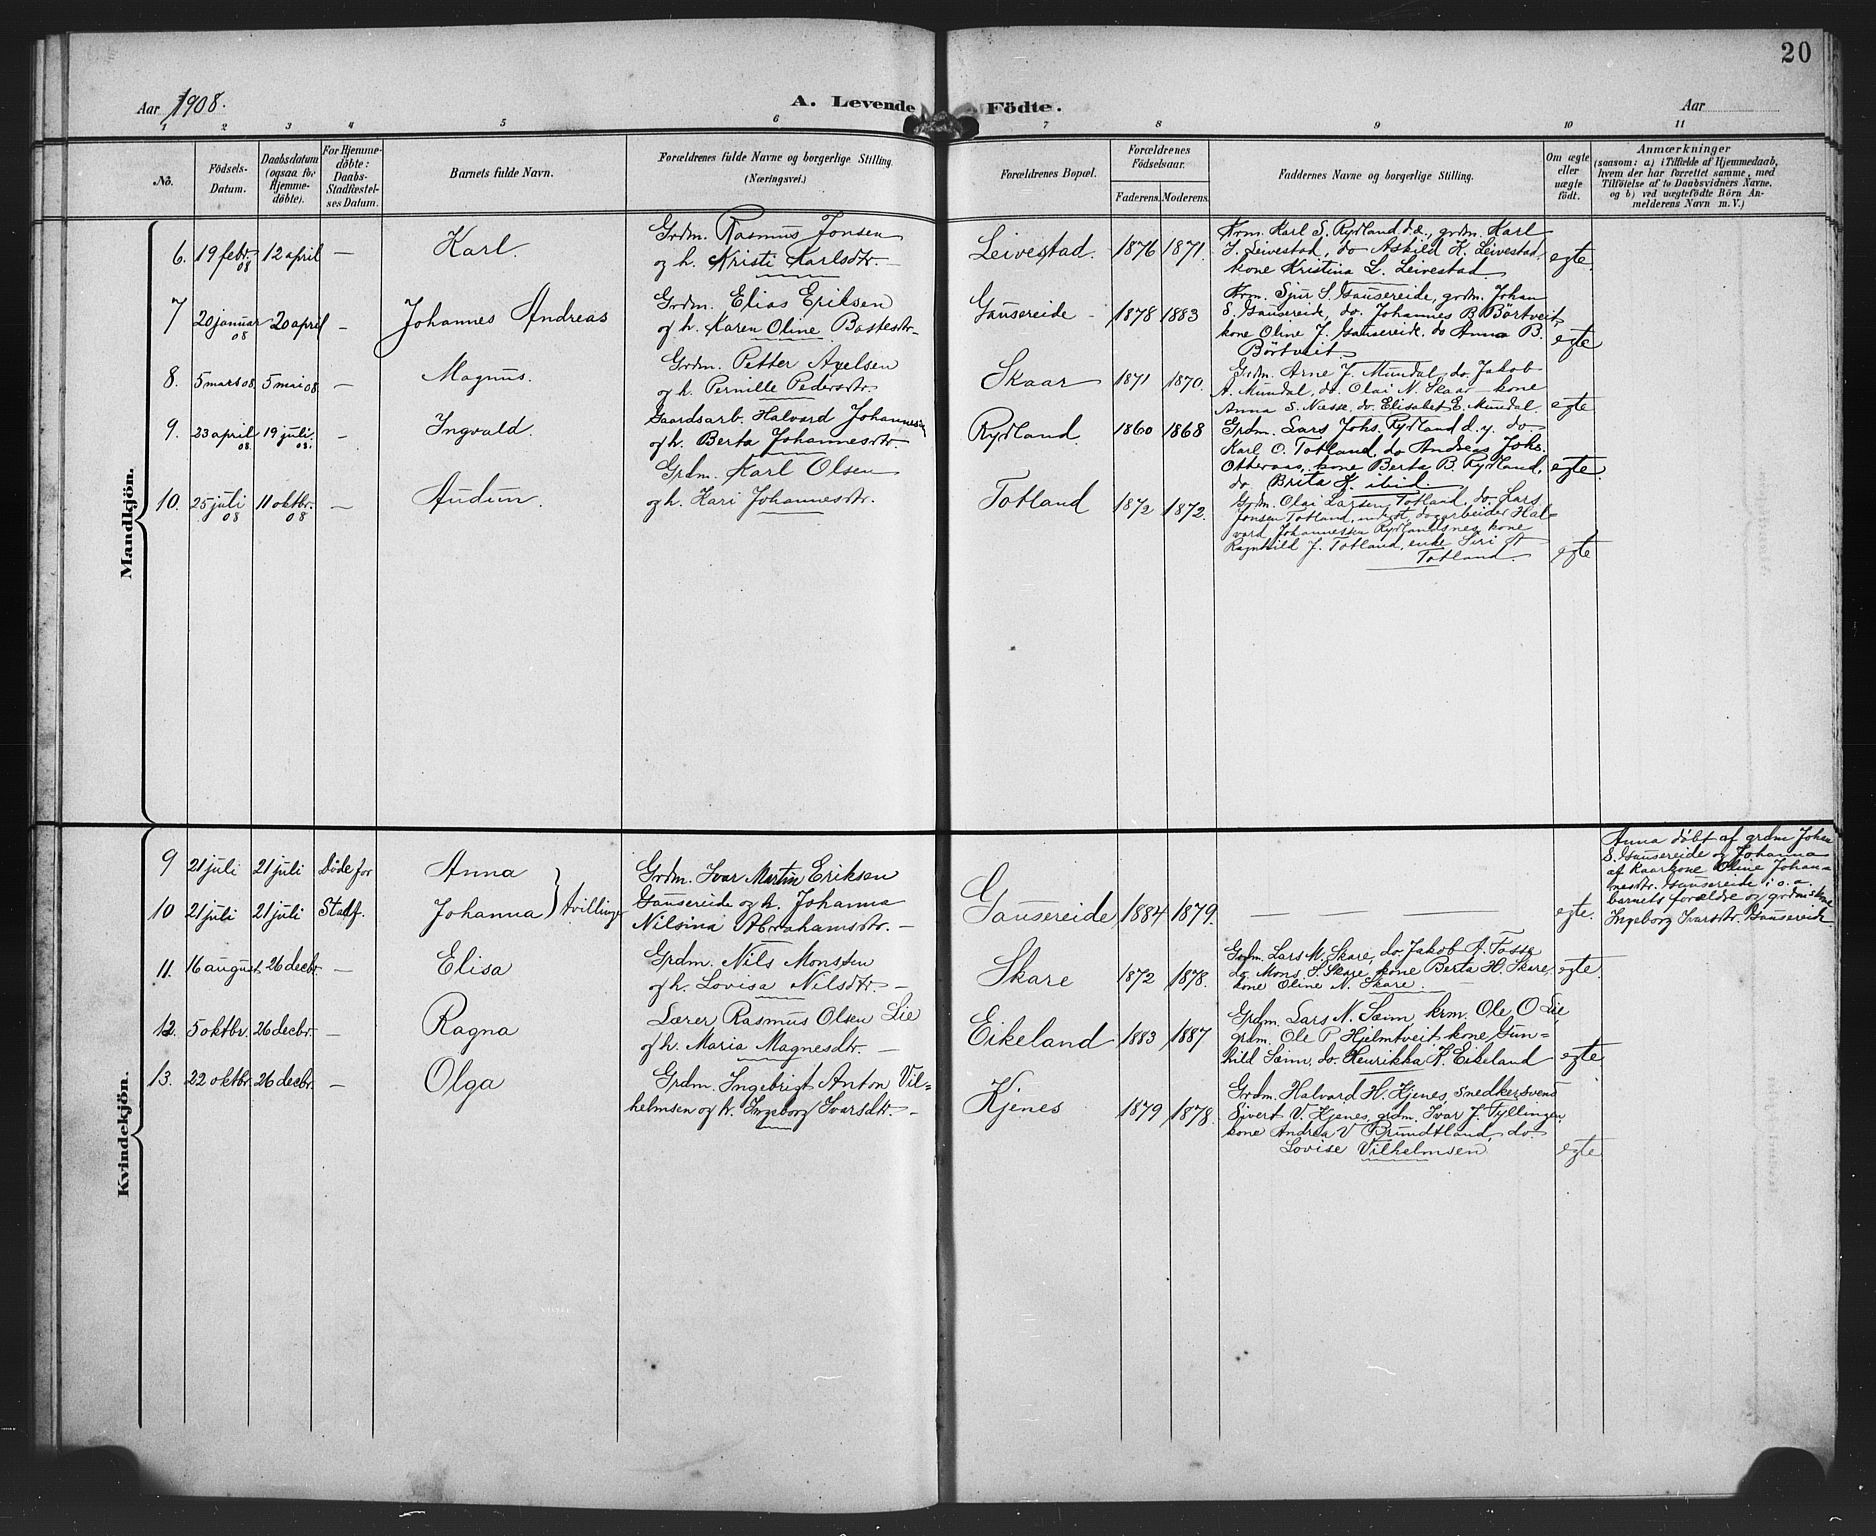 20
Aar 1908.
A. Levende Födte.
Aar
1 2 3 4 5 6 7 8 9 10 11
No.
Födsels-
Datum.
Daabsdatum
(ogsaa for
Hjemme-
döbte).
For Hjemme-
döbte:
Daabs-
Stadfæstel-
ses Datum.
Barnets fulde Navn.
Forældrenes fulde Navne og borgerlige Stilling.
(Næringsvei.)
Forældrenes Bopæl.
Forældrenes
Födselsaar.
Faderens. Moderens.
Faddernes Navne og borgerlige Stilling.
Om ægte
eller
uægte
födt.
Anmærkninger
(saasom: a) i Tilfælde af Hjemmedaab,
hvem der har forrettet samme, med
Tilföielse af to Daabsvidners Navne.
og b) ved uægtefödte Börn An-
melderens Navn m. V.)
Mandkjön.
6. 19 febr. 08 12 april — Karl.
Grdm. Rasmus Jonsen
og h. Kristi Karlsdtr. —
Leivestad. 1876 1871.
Krm. Karl S. Rydland d.æ., grdm. Karl
J. Leivestad, do Askild K. Leivestad,
kone Kristina L. Leivestad
egte.
7 20 januar 08 20 april — Johannes Andreas
Grdm. Elias Eriksen
og h. Karen Oline Bastesdtr. —
Gausereide — 1878 1883
Krm. Sjur S. Gausereide, grdm. Johan
S. Gausereide, do. Johannes B. Börtveit,
kone Oline J. Gausereide. do Anna B.
Börtveit.
egte
8. 5 mars 08. 5 mai 08. — Magnus.
Grdm. Petter Axelsen
og h. Pernille Pedersdtr.
Skaar 1871 1870.
Grdm. Arne J. Mundal, do. Jakob
A. Mundal, do. Olai N. Skaar kone
Anna S. Næsse, do. Elisabet E. Mundal.
egte
9. 23 april 08. 19 juli 08. — Ingvald.
Gaardsarb. Halvard Johannessen
og h. Berta Johannesdtr.
Rydland. 1860 1868
Grdm. Lars Johs. Rydland d.y. do
Karl O. Totland, do Andreas Johs.
kone Berta B. Rydland,
do Brita K. ibid.
egte.
10. 25 juli 08 11 oktbr. 08 — Audun.
Grdm. Karl Olsen
og h. Kari Johannesdtr.
Totland 1872 1872.
Grdm. Olai Larsen Totland, do. Lars
Jonsen Totland, arbeider Hal-
vard Johannessen Rydlandsnes, kone
Ragnhild J. Totland, enke Siri
Totland.
egte
Kvindekjön.
9 21 juli 21 juli Döde før Anna
10 21 juli 21 juli Stadf. Johanna } tvillinger
Grdm. Ivar Martin Eriksen
Gausereide og h. Johanna
Nilsina Abrahamsdtr. —
Gausereide 1884 1879.
— — —
egte.
Anna döbt af grdm Johan
S. Gausereide og Johanna
af kaarkone Oline Johan-
nesdtr. Gausereide i o. a.
barnets forældre og grdmskone
Ingeborg Ivarsdtr. Gausereide
11. 16 august. 26 decbr. — Elisa
Grdm. Nils Monssen
og h. Lovisa Nilsdtr. —
Skare 1872 1878.
Grdm. Lars M. Skare, do. Jakob A. Tosse
do Mons S. Skare, kone Berta H. Skare,
kone Oline N. Skare. —
egte.
12. 5 oktbr. 26 decbr. — Ragna
Lærer Rasmus Olsen Lie
og h. Maria Magnesdtr. —
Eikeland 1883 1887
Grdm. Lars N. Sæim krm. Ole O Lie,
grdm. Ole P Hjelmtveit kone Gun-
hild Sæim, do. Henrikka N. Eikeland
egte.
13. 22 oktbr. 26 decbr. — Olga
Grdm. Ingebrigt Anton Vil-
helmsen og h. Ingeborg Ivarsdtr. —
Kjenes 1879 1878.
Grdm. Halvard H. Kjenes, snedkersvend
Sivert V. Kjenes, grdm. Ivar J. Tyllingen,
kone Andrea V Brundtland, do.
Lovise Vilhelmsen
egte.